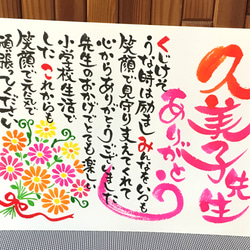 久美子先生
ありがとう
くじけそ
うな時は励ましみんなをいつも
笑顔で見守りまえてくれて
心からありがとうございました
先生のおかげでとても楽しい
小学校生活で
したこれからも
笑顔で元気で
頑張ってください